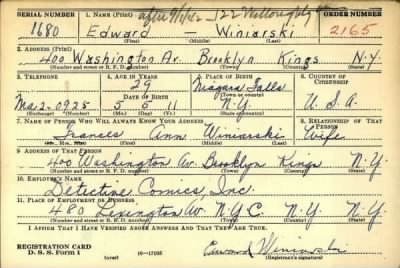 SERIAL NUMBER 1. NAME (Print) 122 Willoughby ORDER NUMBER
1680 Edward — Winiarski 2165
(First) (Middle) (Last)
2. ADDRESS (Print)
400 Washington Av. Brooklyn Kings N.Y.
(Number and street or R. F. D. number) (Town) (County) (State)
3. TELEPHONE 4. AGE IN YEARS 5. PLACE OF BIRTH 6. COUNTRY OF CITIZENSHIP
29 Niagara Falls
DATE OF BIRTH (Town or county)
Ma2-0925 5 5 11 N.Y. U.S.A.
(Exchange) (Number) (Mo.) (Day) (Yr.) (State or country)
7. NAME OF PERSON WHO WILL ALWAYS KNOW YOUR ADDRESS 8. RELATIONSHIP OF THAT PERSON
Frances Ann Winiarski Wife
(Mr., Mrs., Miss) (First) (Middle) (Last)
9. ADDRESS OF THAT PERSON
400 Washington Av. Brooklyn Kings N.Y.
(Number and street or R. F. D. number) (Town) (County) (State)
10. EMPLOYER'S NAME
Detective Comics, Inc.
11. PLACE OF EMPLOYMENT OR BUSINESS
480 Lexington Av N.Y.C. N.Y. N.Y.
(Number and street or R. F. D. number) (Town) (County) (State)
I AFFIRM THAT I HAVE VERIFIED ABOVE ANSWERS AND THAT THEY ARE TRUE.
REGISTRATION CARD
D. S. S. Form 1 (over) 16—17105 Edward Winiarski
(Registrant's signature)